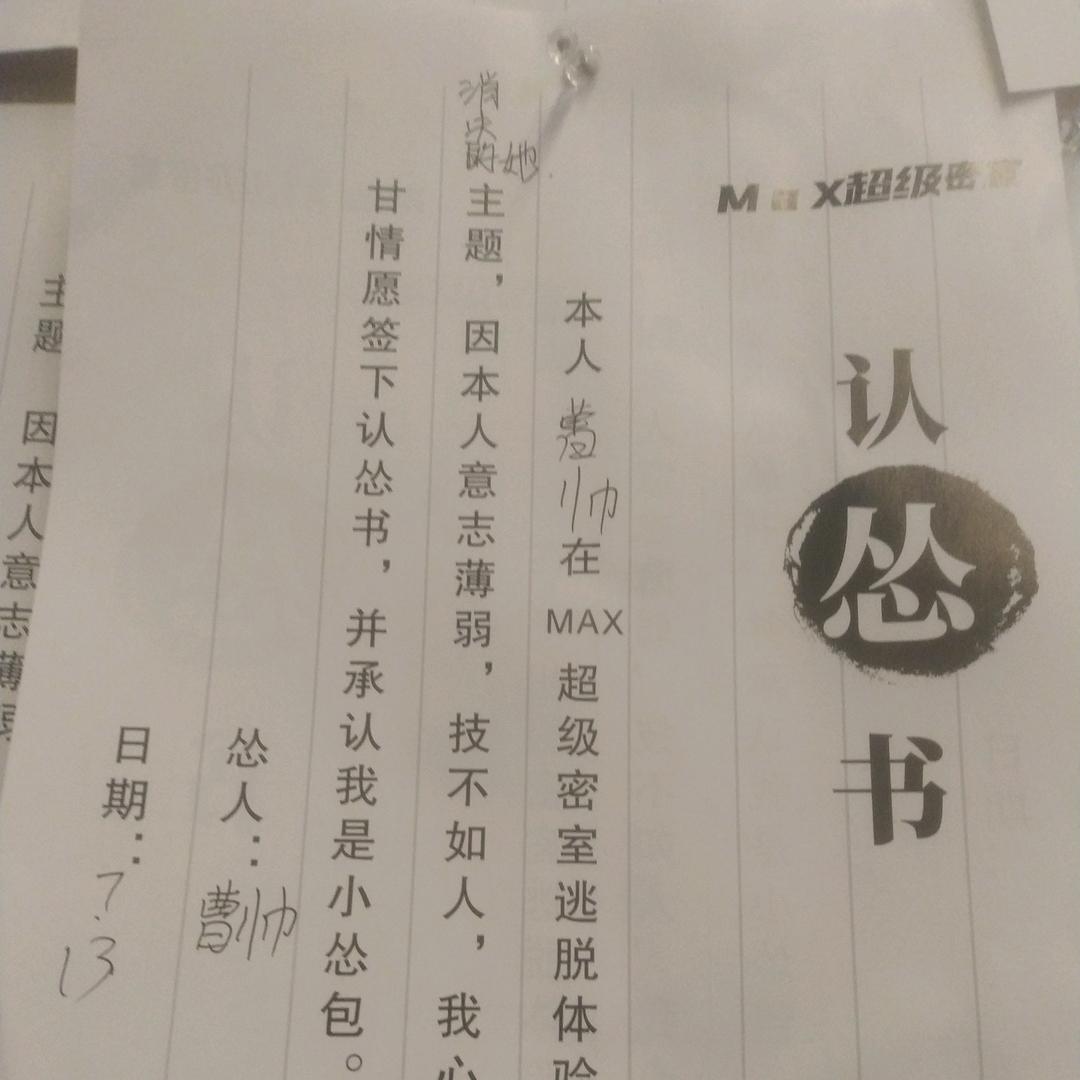 Max超级密室
认怂书
本人曹帅在MAX超级密室逃脱体验
消失的她主题，因本人意志薄弱，技不如人，我心
甘情愿签下认怂书，并承认我是小怂包。
怂人：曹帅
日期：7.13
主题 因本人意志薄弱